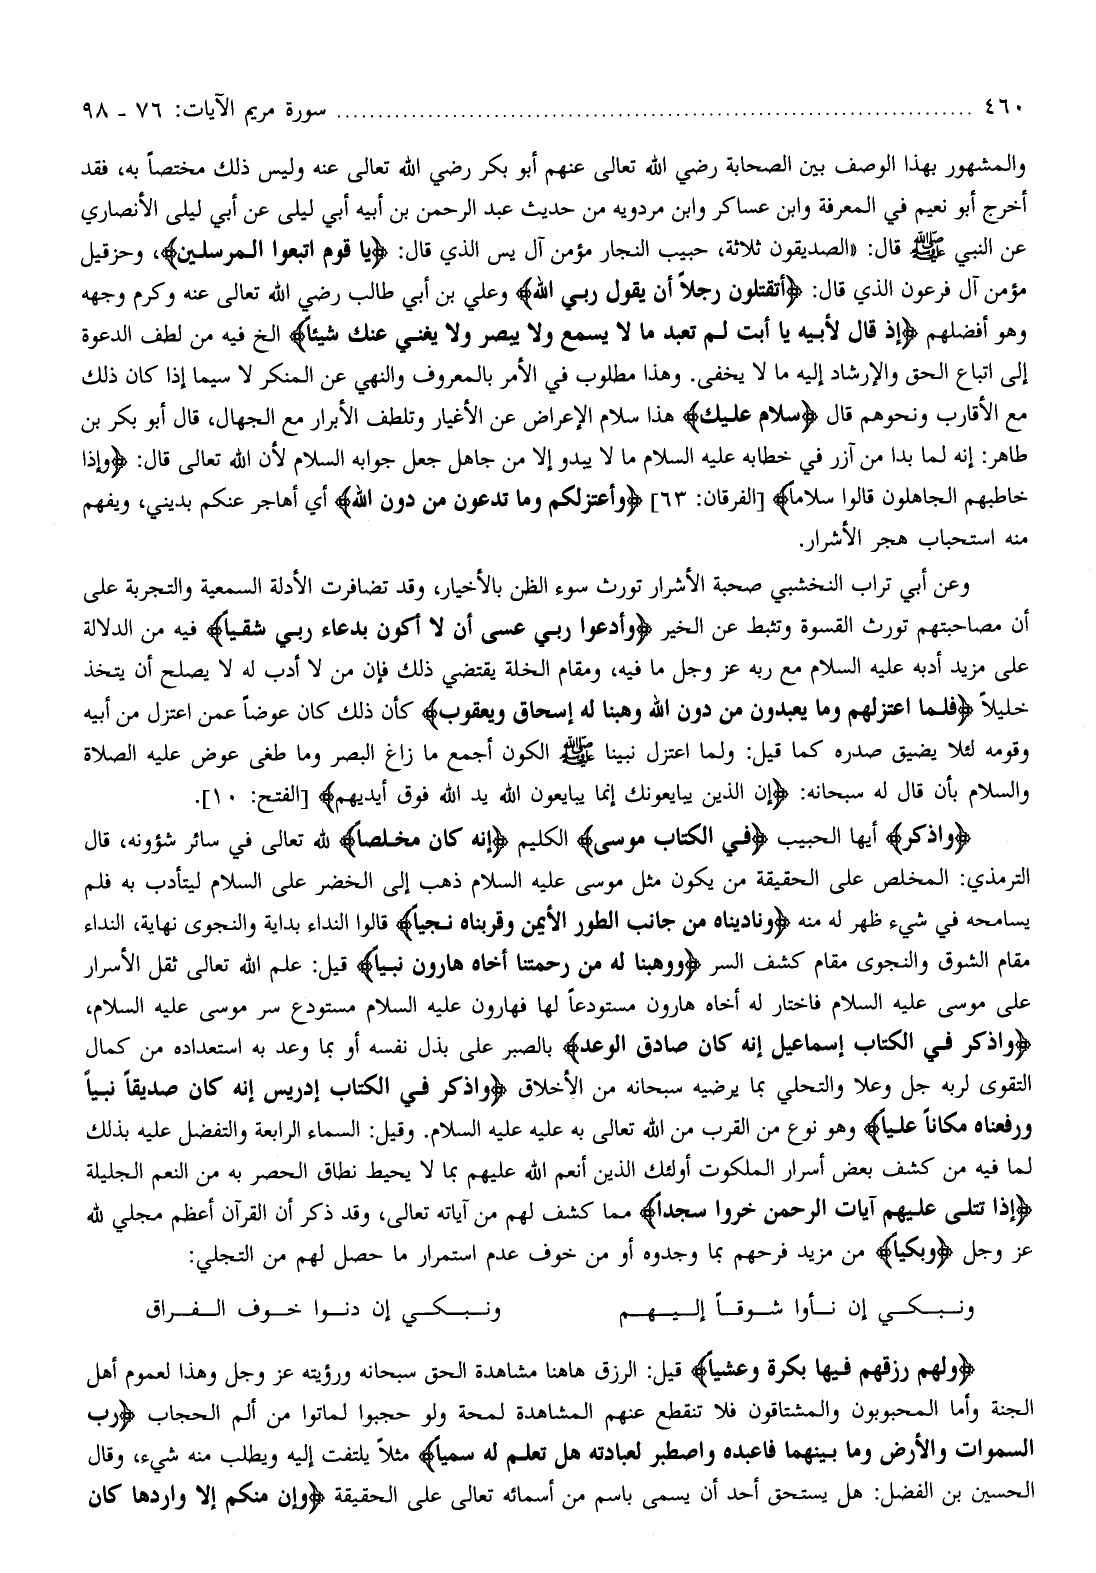 ٤٦٠ ........ سورة مريم الآيات: ٧٦ ـ ٩٨
والمشهور بهذا الوصف بين الصحابة رضي الله تعالى عنهم أبو بكر رضي الله تعالى عنه وليس ذلك مختصاً به، فقد
أخرج أبو نعيم في المعرفة وابن عساكر وابن مردويه من حديث عبد الرحمن بن أبيه أبي ليلى عن أبي ليلى الأنصاري
عن النبي ﷺ قال: «الصديقون ثلاثة، حبيب النجار مؤمن آل يس الذي قال: ﴿يا قوم اتبعوا المرسلين﴾، وحزقيل
مؤمن آل فرعون الذي قال: ﴿أتقتلون رجلاً أن يقول ربي الله﴾ وعلي بن أبي طالب رضي الله تعالى عنه وكرم وجهه
وهو أفضلهم ﴿إذ قال لأبيه يا أبت لم تعبد ما لا يسمع ولا يبصر ولا يغني عنك شيئاً﴾ الخ فيه من لطف الدعوة
إلى اتباع الحق والإرشاد إليه ما لا يخفى. وهذا مطلوب في الأمر بالمعروف والنهي عن المنكر لا سيما إذا كان ذلك
مع الأقارب ونحوهم قال ﴿سلام عليك﴾ هذا سلام الإعراض عن الأغيار وتلطف الأبرار مع الجهال، قال أبو بكر بن
طاهر: إنه لما بدا من آزر في خطابه عليه السلام ما لا يبدو إلا من جاهل جعل جوابه السلام لأن الله تعالى قال: ﴿وإذا
خاطبهم الجاهلون قالوا سلاماً﴾ [الفرقان: ٦٣] ﴿وأعتزلكم وما تدعون من دون الله﴾ أي أهاجر عنكم بديني، ويفهم
منه استحباب هجر الأشرار.
وعن أبي تراب النخشبي صحبة الأشرار تورث سوء الظن بالأخيار، وقد تضافرت الأدلة السمعية والتجربة على
أن مصاحبتهم تورث القسوة وتثبط عن الخير ﴿وأدعوا ربي عسى أن لا أكون بدعاء ربي شقياً﴾ فيه من الدلالة
على مزيد أدبه عليه السلام مع ربه عز وجل ما فيه، ومقام الخلة يقتضي ذلك فإن من لا أدب له لا يصلح أن يتخذ
خليلاً ﴿فلما اعتزلهم وما يعبدون من دون الله وهبنا له إسحاق ويعقوب﴾ كأن ذلك كان عوضاً عمن اعتزل من أبيه
وقومه لئلا يضيق صدره كما قيل: ولما اعتزل نبينا ﷺ الكون أجمع ما زاغ البصر وما طغى عوض عليه الصلاة
والسلام بأن قال له سبحانه: ﴿إن الذين يبايعونك إنما يبايعون الله يد الله فوق أيديهم﴾ [الفتح: ١٠].
﴿واذكر﴾ أيها الحبيب ﴿في الكتاب موسى﴾ الكليم ﴿إنه كان مخلصاً﴾ لله تعالى في سائر شؤونه، قال
الترمذي: المخلص على الحقيقة من يكون مثل موسى عليه السلام ذهب إلى الخضر على السلام ليتأدب به فلم
يسامحه في شيء ظهر له منه ﴿وناديناه من جانب الطور الأيمن وقربناه نجياً﴾ قالوا النداء بداية والنجوى نهاية، النداء
مقام الشوق والنجوى مقام كشف السر ﴿ووهبنا له من رحمتنا أخاه هارون نبياً﴾ قيل: علم الله تعالى ثقل الأسرار
على موسى عليه السلام فاختار له أخاه هارون مستودعاً لها فهارون عليه السلام مستودع سر موسى عليه السلام،
﴿واذكر في الكتاب إسماعيل إنه كان صادق الوعد﴾ بالصبر على بذل نفسه أو بما وعد به استعداده من كمال
التقوى لربه جل وعلا والتحلي بما يرضيه سبحانه من الأخلاق ﴿واذكر في الكتاب إدريس إنه كان صديقاً نبياً
ورفعناه مكاناً علياً﴾ وهو نوع من القرب من الله تعالى به عليه عليه السلام. وقيل: السماء الرابعة والتفضل عليه بذلك
لما فيه من كشف بعض أسرار الملكوت أولئك الذين أنعم الله عليهم بما لا يحيط نطاق الحصر به من النعم الجليلة
﴿إذا تتلى عليهم آيات الرحمن خروا سجداً﴾ مما كشف لهم من آياته تعالى، وقد ذكر أن القرآن أعظم مجلي لله
عز وجل ﴿وبكياً﴾ من مزيد فرحهم بما وجدوه أو من خوف عدم استمرار ما حصل لهم من التجلي:
ونبكي إن نأوا شوقاً إليهم ونبكي إن دنوا خوف الفراق
﴿ولهم رزقهم فيها بكرة وعشياً﴾ قيل: الرزق هاهنا مشاهدة الحق سبحانه ورؤيته عز وجل وهذا لعموم أهل
الجنة وأما المحبوبون والمشتاقون فلا تنقطع عنهم المشاهدة لمحة ولو حجبوا لماتوا من ألم الحجاب ﴿رب
السموات والأرض وما بينهما فاعبده واصطبر لعبادته هل تعلم له سمياً﴾ مثلاً يلتفت إليه ويطلب منه شيء، وقال
الحسين بن الفضل: هل يستحق أحد أن يسمى باسم من أسمائه تعالى على الحقيقة ﴿وإن منكم إلا واردها كان